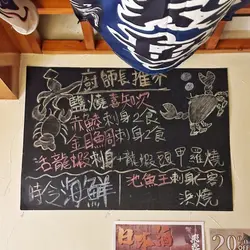 廚師長推介
鹽燒喜知次
赤鯥刺身2食
金目鯛刺身2食
活龍蝦刺身+龍蝦頭甲羅燒
時令海鮮
池魚王刺身(一客)
浜燒
日本酒
20%